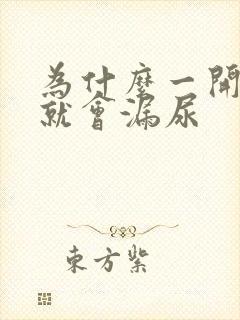 為什麼一開
就會漏尿
東方紫